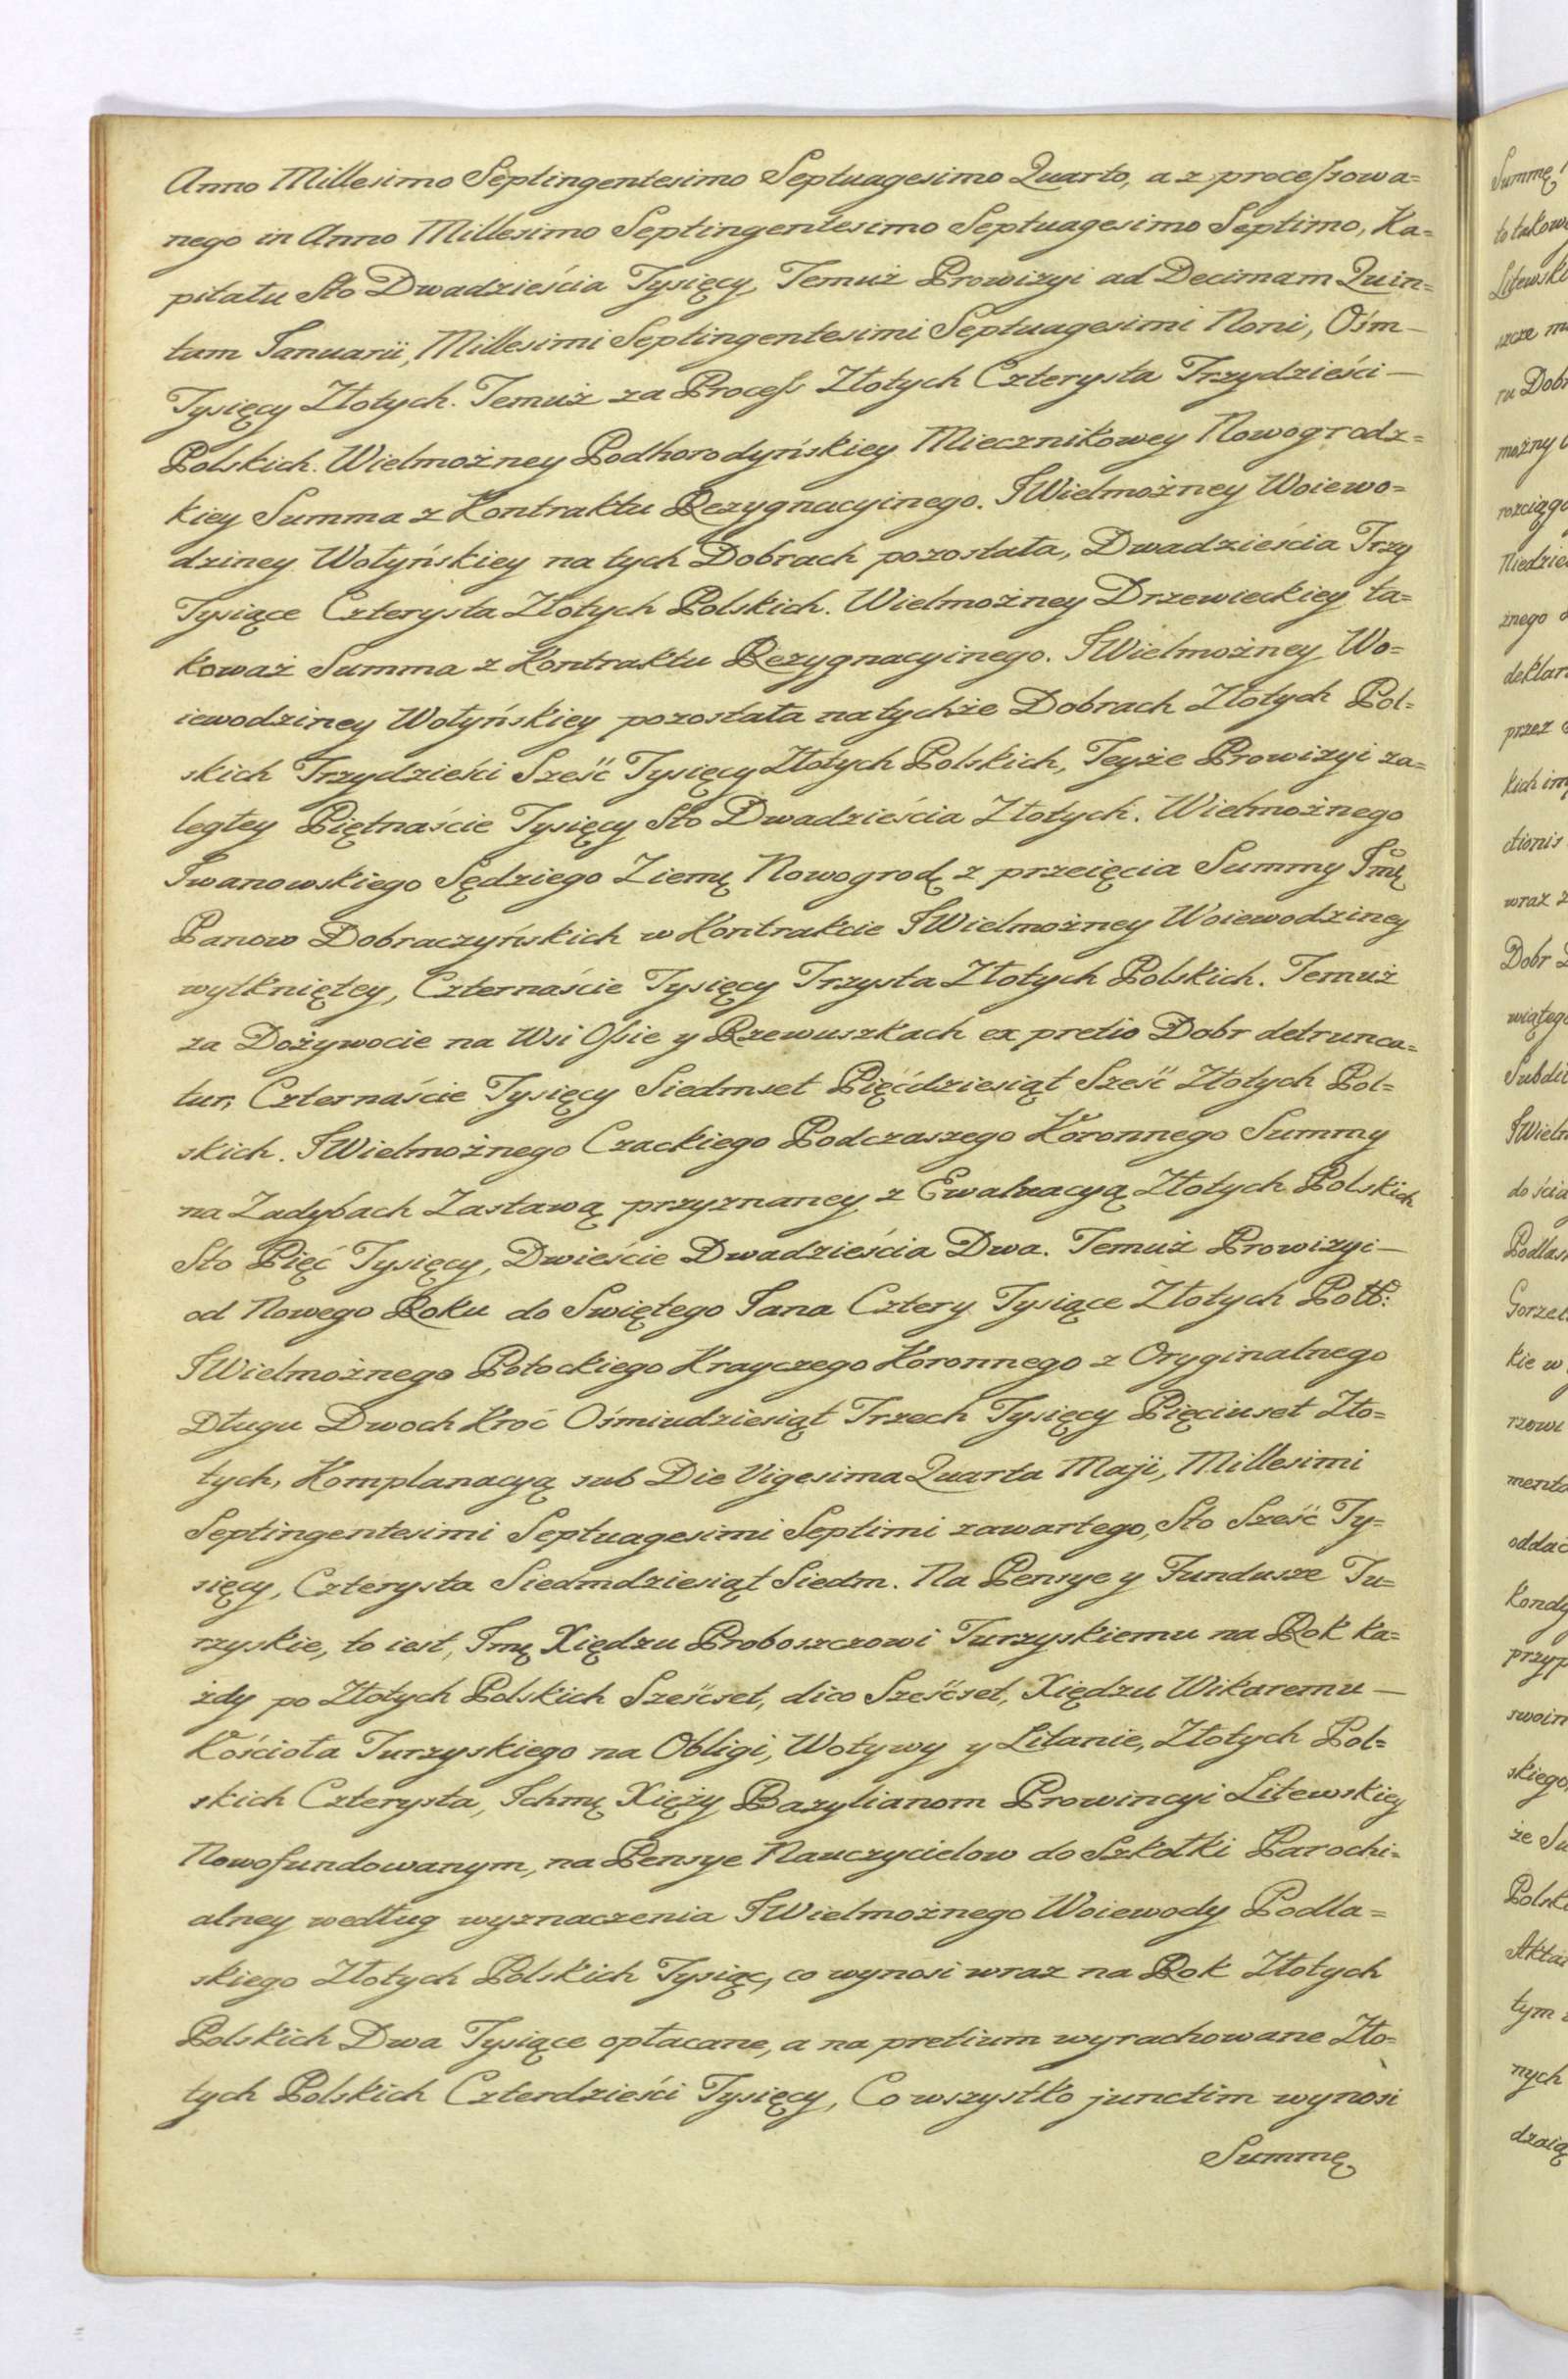 Anno Millesimo Septingentesimo Septuagesimo Quarto, a z processowa=
nego in Anno Millesimo Septingentesimo Septuagesimo Septimo, Ka=
pitału Sto Dwadzieścia Tysięcy, Temuż Prowizyi ad Decimam Quin=
tam Januarii, Millesimi Septingentesimi Septuagesimi Noni, Ośm—
Tysięcy Złotych. Temuż za Process Złotych Czterysta Trzydzieści—
Polskich. Wielmożney Podhorodyńskiey Miecznikowey Nowogrodz=
kiey Summa z Kontraktu Rezygnacyinego. JWielmożney Woiewo=
dziney Wołyńskiey na tych Dobrach pozostała, Dwadzieścia Trzy
Tysiące Czterysta Złotych Polskich. Wielmożney Drzewieckiey ta=
koważ Summa z Kontraktu Rezygnacyinego. JWielmożney Wo=
iewodziney Wołyńskiey pozostała na tychże Dobrach Złotych Pol=
skich Trzydzieści Sześć Tysięcy Złotych Polskich, Teyże Prowizyi za=
ległey Piętnaście Tysięcy Sto Dwadzieścia Złotych. Wielmożnego
Iwanowskiego Sędziego Ziemę Nowogrodę z przeięcia Summy Jmę
Panow Dobraczyńskich w Kontrakcie JWielmożney Woiewodziney
wytkniętey, Czternaście Tysięcy Trzysta Złotych Polskich. Temuż
za Dożywocie na Wsi Ossie y Rzewuszkach ex pretio Dobr detrunca=
tur, Czternaście Tysięcy Siedmset Pięćdziesiąt Sześć Złotych Pol=
skich. JWielmożnego Czackiego Podczaszego Koronnego Summy
na Zadybach Zastawą przyznaney z Ewaluacyą Złotych Polskich
Sto Pięć Tysięcy, Dwieście Dwadzieścia Dwa. Temuż Prowizyi—
od Nowego Roku do Swiętego Jana Cztery Tysiące Złotych Polł:
JWielmożnego Potockiego Krayczego Koronnego z Oryginalnego
Długu Dwoch Kroć Ośmiudziesiąt Trzech Tysięcy Pięciuset Zło=
tych, Komplanacyą sub Die Vigesima Quarta Maji, Millesimi
Septingentesimi Septuagesimi Septimi zawartego, Sto Sześć Ty=
sięcy, Czterysta Siedmdziesiąt Siedm. Na Pensye y Fundusze Tu=
rzyskie, to iest, Jmę Xiędzu Proboszczowi Turzyskiemu na Rok ka=
żdy po Złotych Polskich Sześćset, dico Sześćset, Xiędzu Wikaremu—
Kościoła Turzyskiego na Obligi, Wotywy y Litanie, Złotych Pol=
skich Czterysta, Ichmę Xięży Bazylianom Prowincyi Litewskiey
Nowofundowanym, na Pensye Nauczycielow do Szkołki Parochi=
alney według wyznaczenia JWielmożnego Woiewody Podla=
skiego Złotych Polskich Tysiąc, co wynosi wraz na Rok Złotych
Polskich Dwa Tysiące opłacane, a na pretium wyrachowane Zło=
tych Polskich Czterdzieści Tysięcy, Co wszystko junctim wynosi
Summę